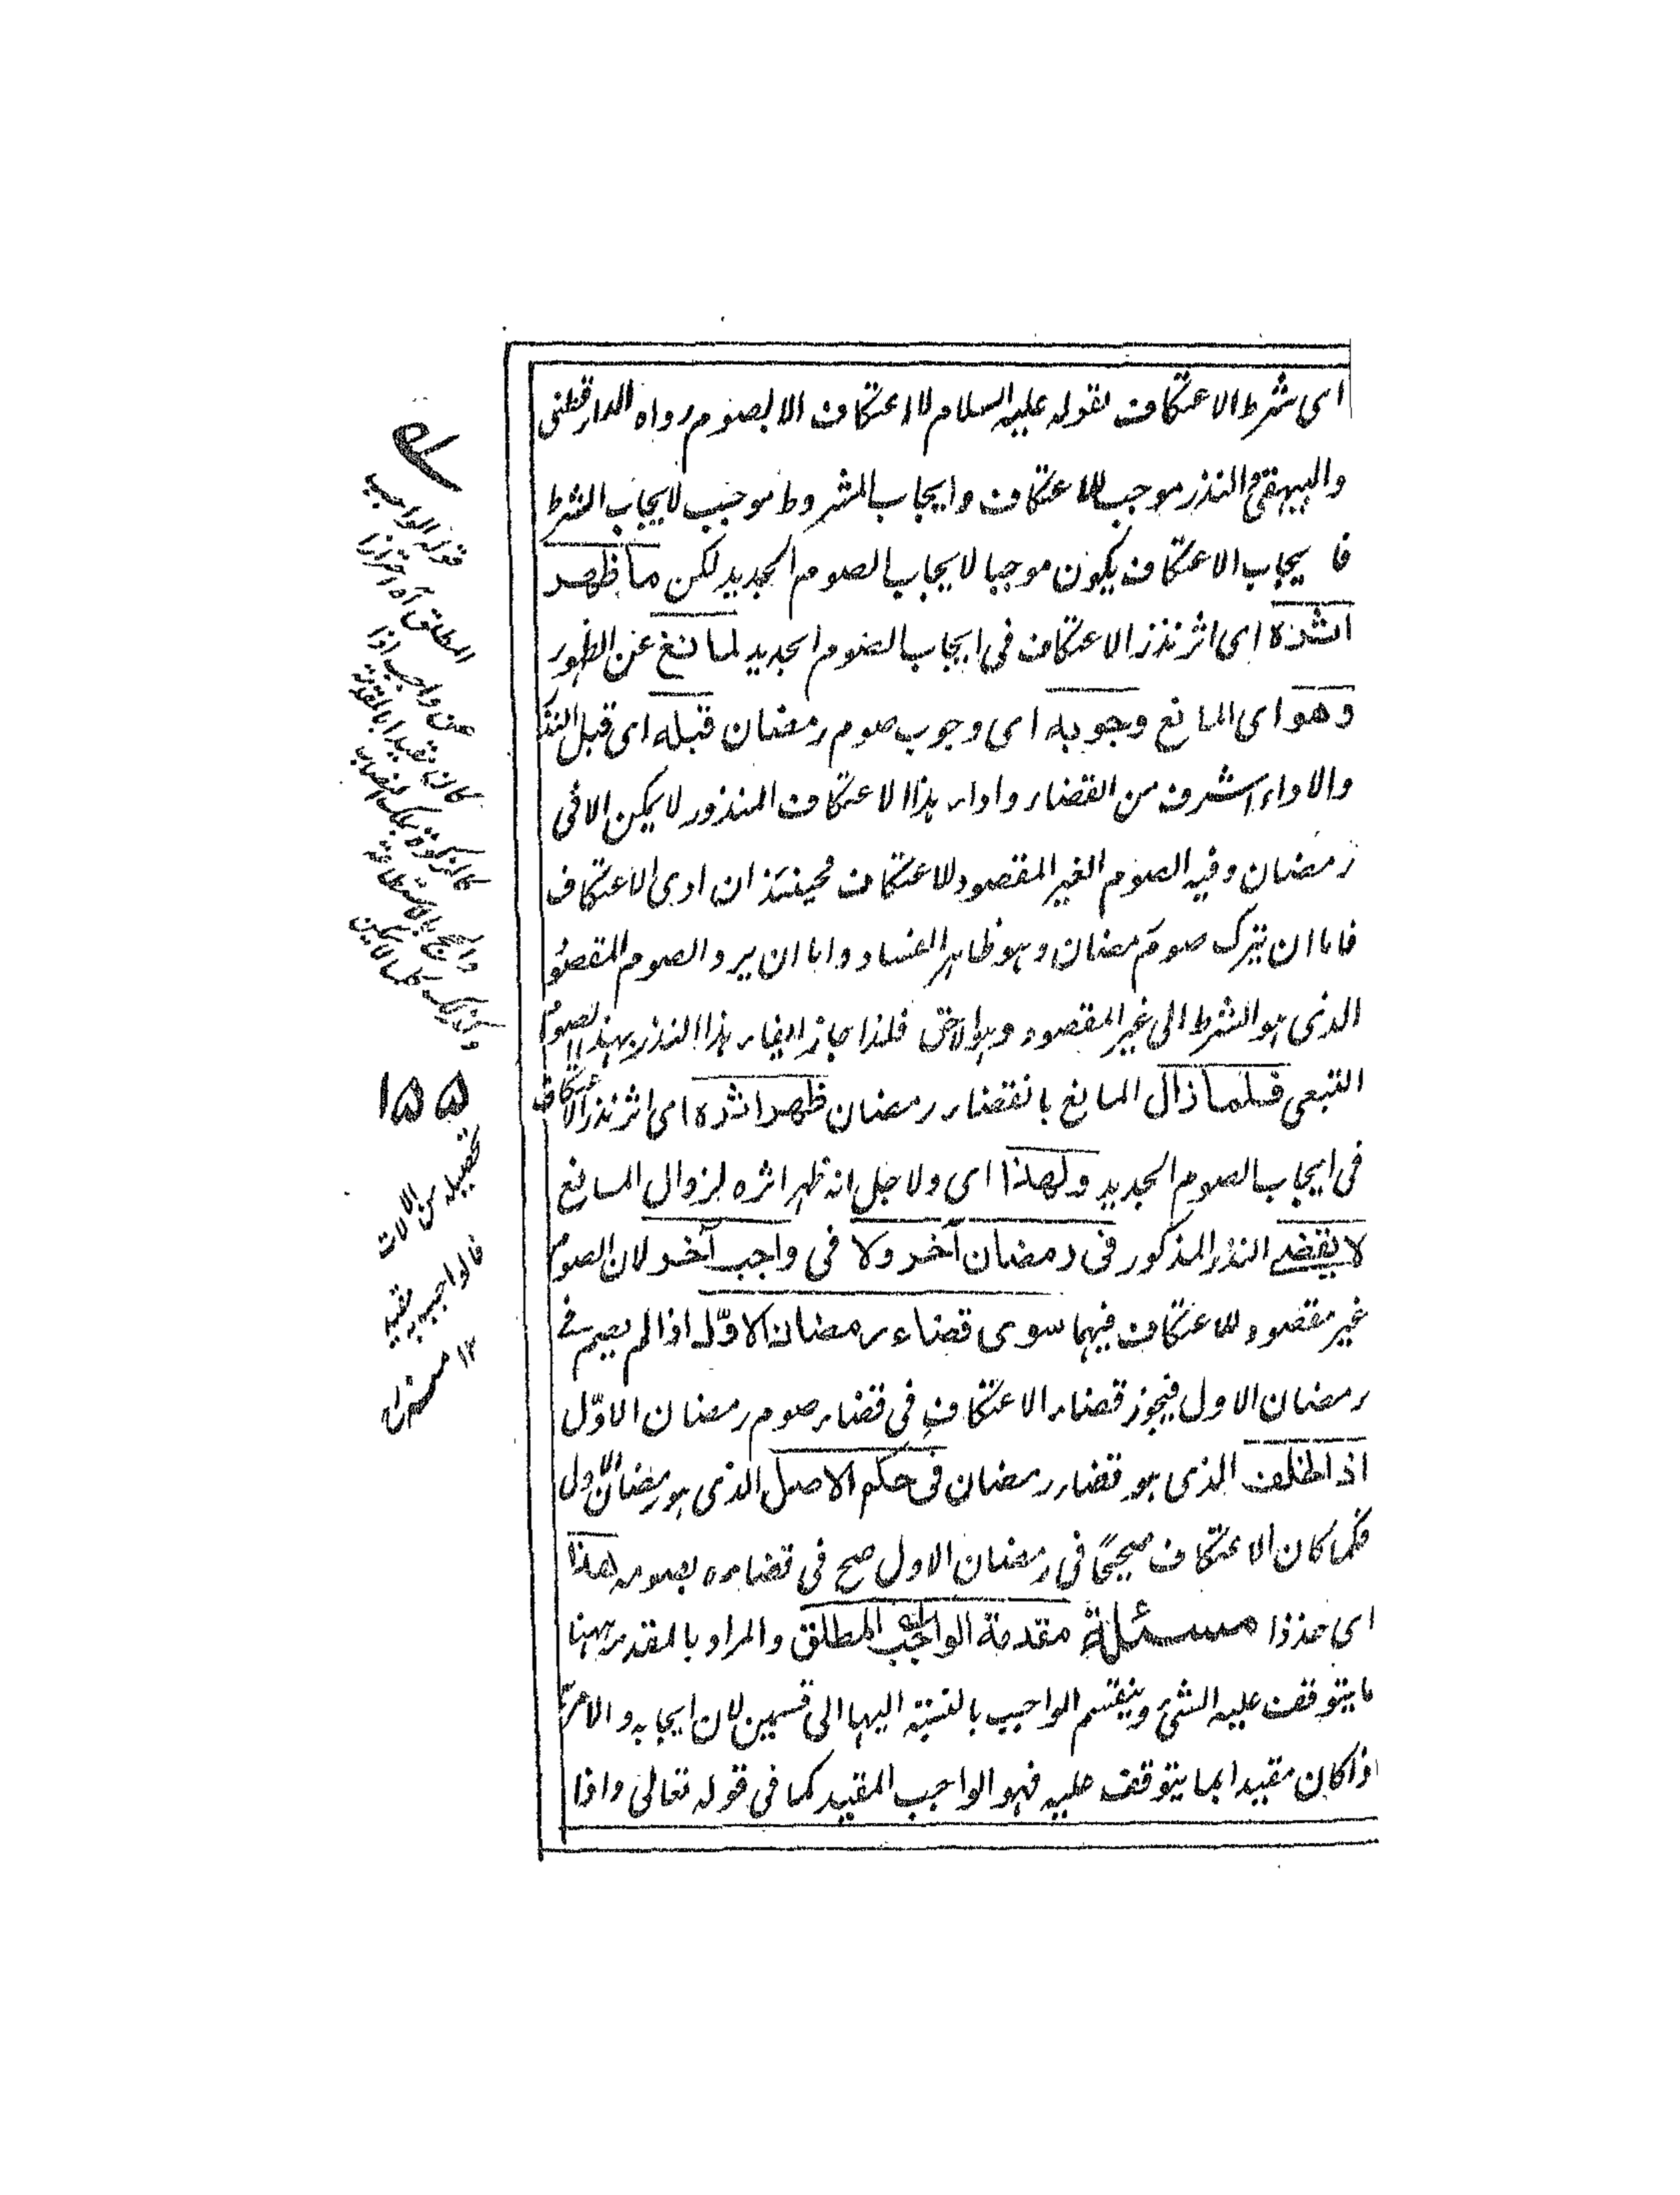 اى شرط الاعتكاف لقوله عليه السلام لا اعتكاف الا بصوم رواه الدارقطنى
والبيهقى النذر موجب للاعتكاف وايجاب المشروط موجب لايجاب الشرط
فايجاب الاعتكاف يكون موجبا لايجاب الصوم الجديد لكن ما ظهر
اثره اى اثر نذر الاعتكاف فى ايجاب الصوم الجديد لمانع عن الظهور
وهو اى المانع وجوبه اى وجوب صوم رمضان قبله اى قبل النذر
والاداء اشرف من القضاء واداء هذا الاعتكاف المنذور لا يمكن الا فى
رمضان وفيه الصوم الغير المقصود للاعتكاف فحينئذ ان ادى الاعتكاف
فاما ان يترك صوم رمضان وهو ظاهر الفساد واما ان يرد الصوم المقصود
الذى هو الشرط الى غير المقصود وهو الاحق فلذا جاز ايفاء هذا النذر بهذا الصوم
التبعى فلما زال المانع بانقضاء رمضان ظهر اثره اى اثر نذر الاعتكاف
فى ايجاب الصوم الجديد ولهذا اى ولاجل انه ظهر اثره لزوال المانع
لا يقضى النذر المذكور فى رمضان آخر ولا فى واجب آخر لان الصوم
غير مقصود للاعتكاف فيهما سوى قضاء رمضان الاول اذا لم يصم فى
رمضان الاول فيجوز قضاء الاعتكاف فى قضاء صوم رمضان الاوّل
اذ الخلف الذى هو قضاء رمضان فى حكم الاصل الذى هو رمضان الاول
فكما كان الاعتكاف صحيحًا فى رمضان الاول صح فى قضاءه بصومه هذا
اى خذ ذا مسئلة مقدمة الواجب المطلق والمراد بالمقدمة ههنا
ما يتوقف عليه الشئ وينقسم الواجب بالنسبة اليها الى قسمين لان ايجابه والامر به
اذا كان مقيدا بما يتوقف عليه فهو الواجب المقيد كما فى قوله تعالى واذا
قوله الواجب
المطلق آه احترز
عن واجب اذا
كان مقيدا بالمقدمة
كالزكوة بملك النصاب
والحج بالاستطاعة
١٥٥
تحصيله من الآلات
فالواجب به مقيد
١٢